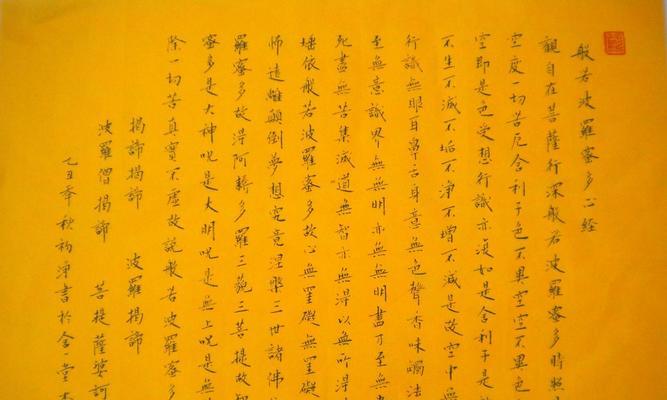 般若波羅蜜多心經
觀自在菩薩行深般若波羅蜜多時照
空度一切苦厄舍利子色不異空空不異色
空即是色受想行識亦復如是舍利子是
不生不滅不垢不淨不增不減是故空中無
行識無眼耳鼻舌身意無色聲香味觸法
至無意識界無無明亦無無明盡乃至無
死盡無苦集滅道無智亦無得以無所得
埵依般若波羅蜜多故心無罣礙無罣礙
怖遠離顛倒夢想究竟涅槃三世諸佛
羅蜜多故得阿耨多羅三藐三菩提故知
蜜多是大神咒是大明咒是無上咒是無
除一切苦真實不虛故說般若波羅蜜多
揭諦揭諦 波羅揭諦
波羅僧揭諦 菩提薩婆訶
乙丑年秋 淨書於 一堂